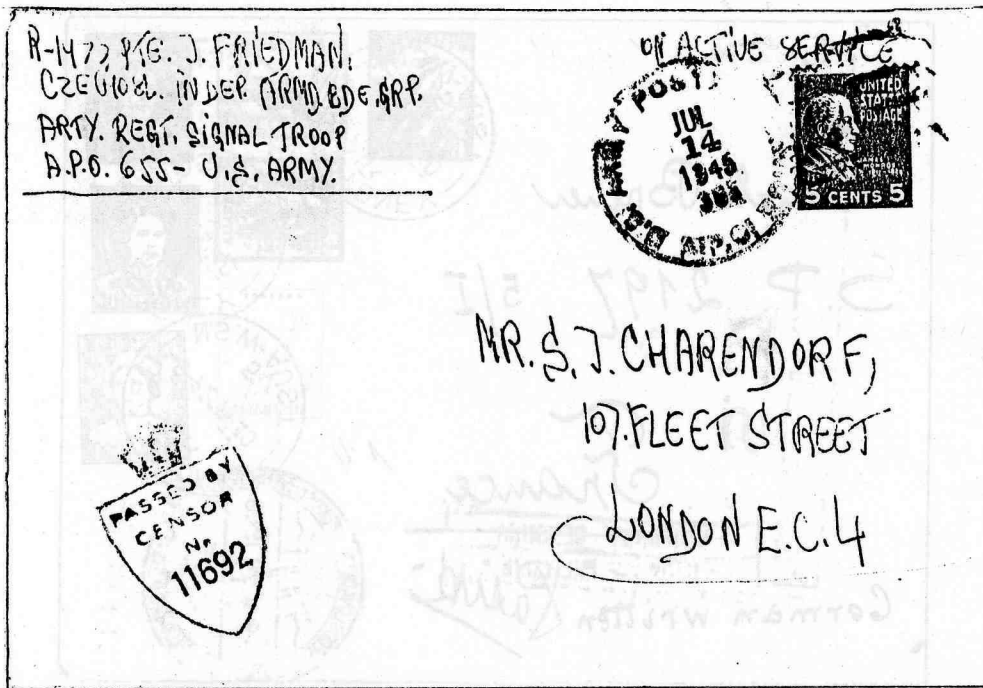 R-1473 PTE. J. FRIEDMAN.
CZECHOSL. INDEP. ARMD. BDE. GRP.
ARTY. REGT. SIGNAL TROOP
A.P.O. 655- U.S. ARMY.
ON ACTIVE SERVICE
ARMY POST
JUL
14
1945
UNITED
STATES
POSTAGE
5 CENTS 5
MR. S. J. CHARENDORF,
107. FLEET STREET
LONDON E.C.4
PASSED BY
CENSOR
Nr
11692
S.P. 2197 5/I
France
German written